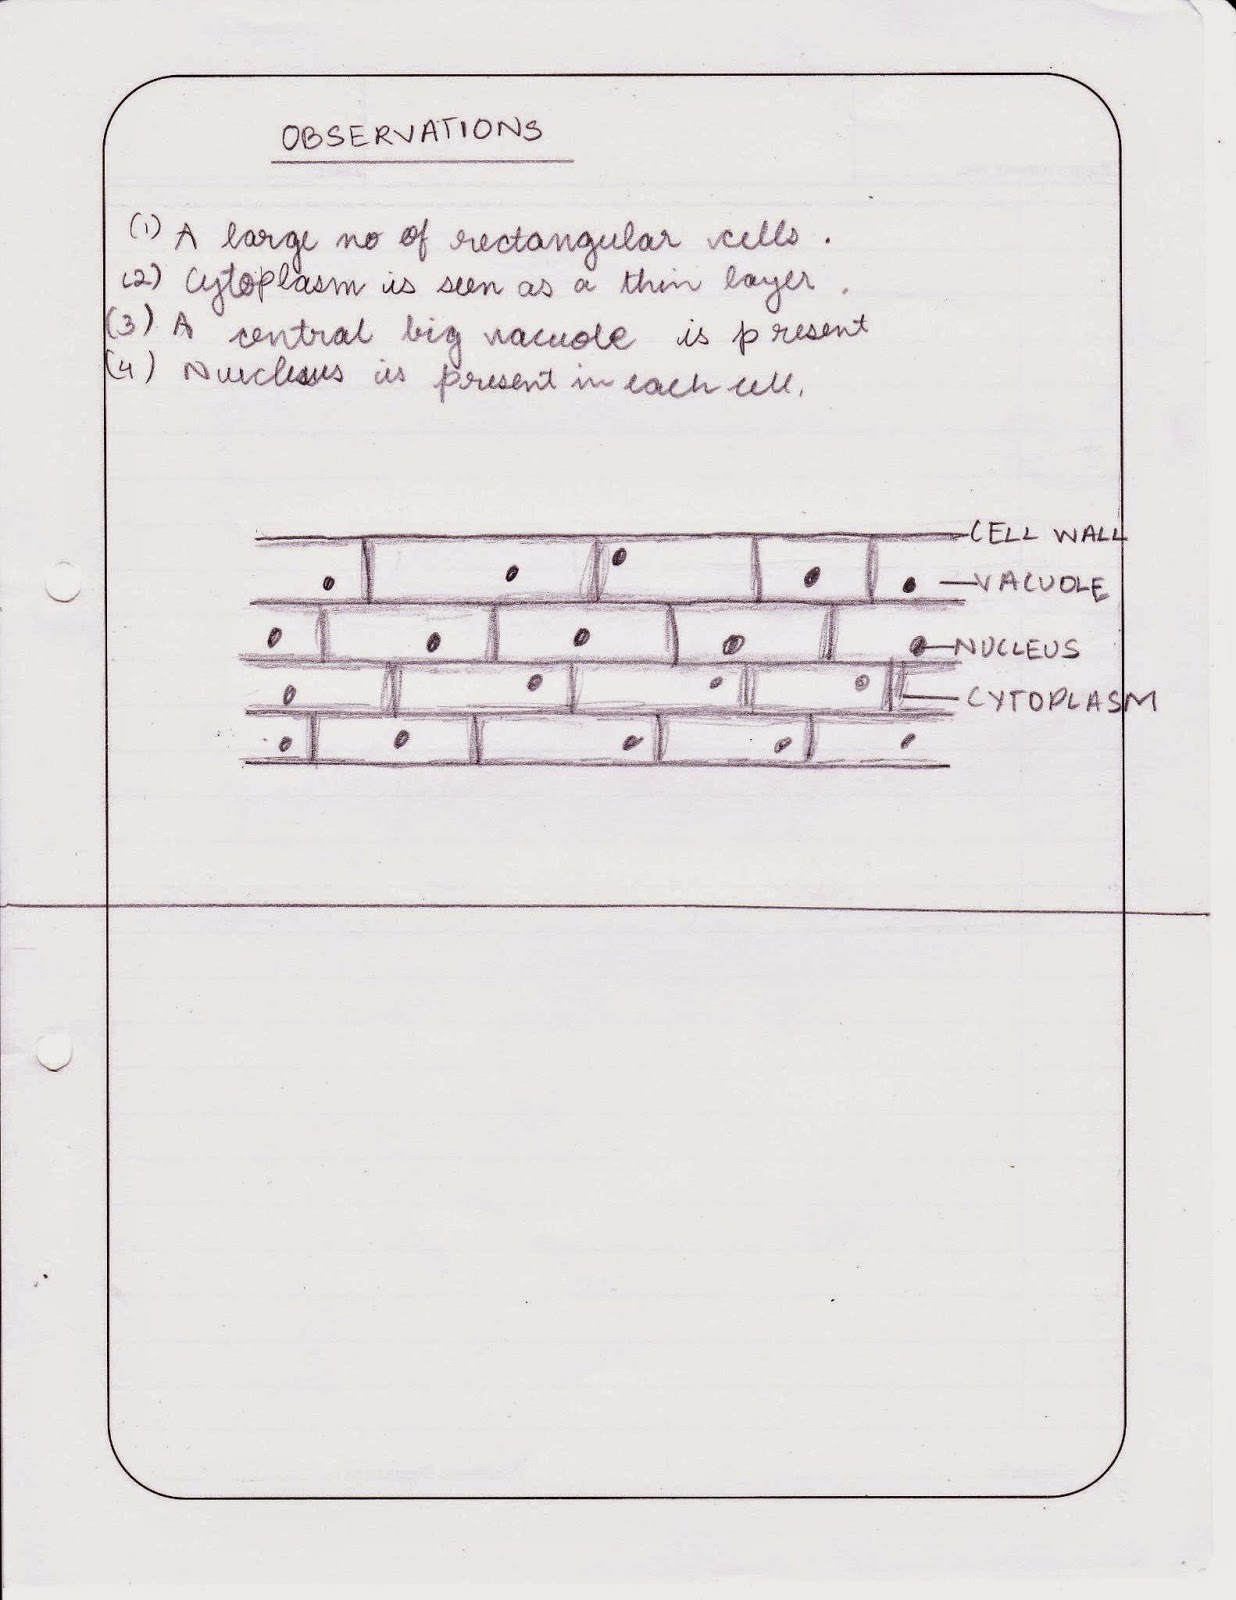 OBSERVATIONS
(1) A large no of rectangular cells.
(2) Cytoplasm is seen as a thin layer.
(3) A central big vacuole is present
(4) Nucleus is present in each cell.
CELL WALL
VACUOLE
NUCLEUS
CYTOPLASM